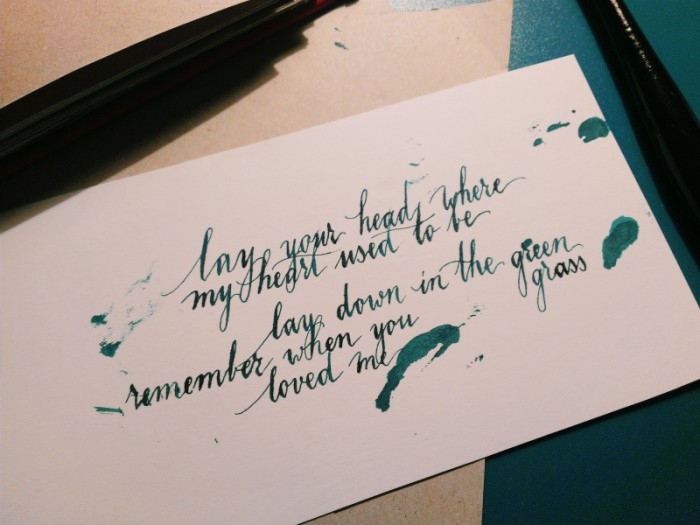 lay your head where
my heart used to be
lay down in the green
grass
remember when you
loved me